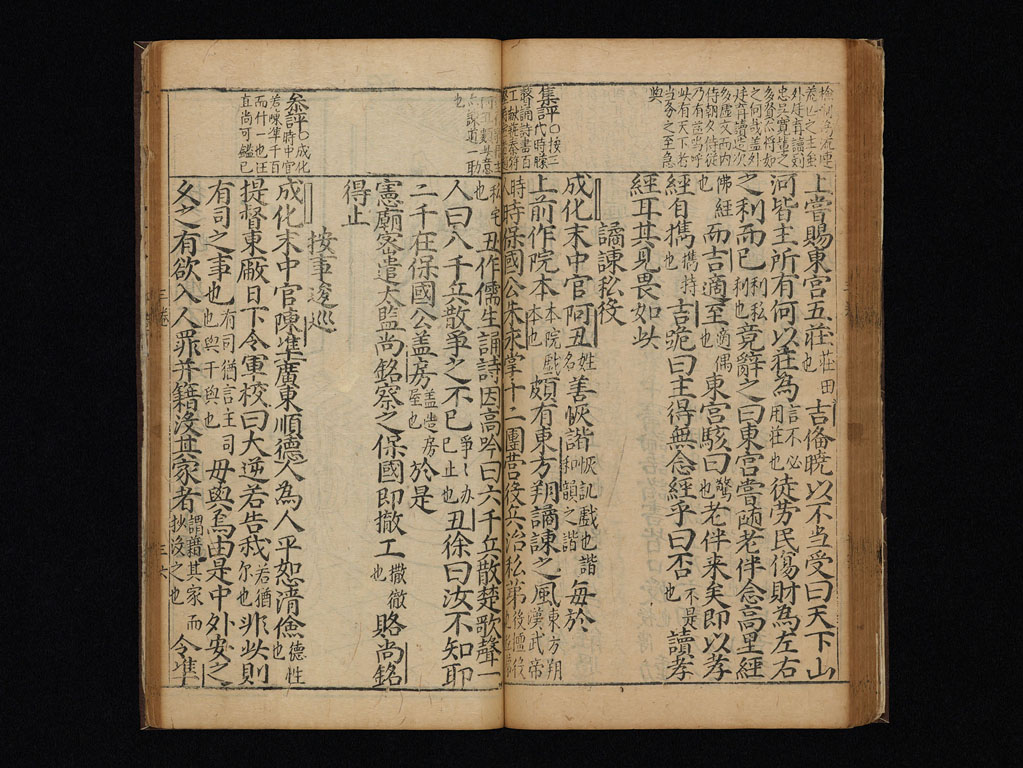 外廷講讀
多虛文而內
侍朝夕侍從
乃有言當呼
此有天下者
之至急
與
上嘗賜東宮五莊莊田也吉偹曉以不当受曰天下山
河皆主所有何以莊為言不必用莊也徒劳民傷財為左右
之利而已利利私也竟辭之曰東宮嘗随老伴念高里經
佛經也而吉適至適偶也東宮駭曰驚也老伴来矣即以孝
經自攜攜持也吉跪曰主得無念經乎曰否不是也讀孝
經耳其見畏如此
譎諫私役
集評○按三代時矇瞽誦詩書百
成化末中官阿丑姓名善恢諧恢訊戲也諧和韻之諧每於
上前作院本本院戲本也頗有東方朔譎諫之風東方朔漢武帝
時人時保國公朱永掌十二團營役兵治私第
私宅也丑作儒生誦詩因高吟曰六千兵散楚歌聲一
人曰八千兵散爭之不已爭〻办已止也丑徐曰汝不知耶
二千在保國公盖房盖造房屋也於是
憲廟密遣太監尚銘察之保國即撤工撤徹也賂尚銘
得止
按事逡巡
叅評○成化時中官
若陳準千百
而什一也汪
直尚可鑑已
成化末中官陳準廣東順德人為人平恕清儉德性
提督東廠日下令軍校曰大逆若告我若猶尔也非此則
有司之事也有司猶言主司也與干與也毋與焉由是中外安之
久之有欲入人罪并籍没其家者謂籍其家而抄没之也令準
三卷
三六